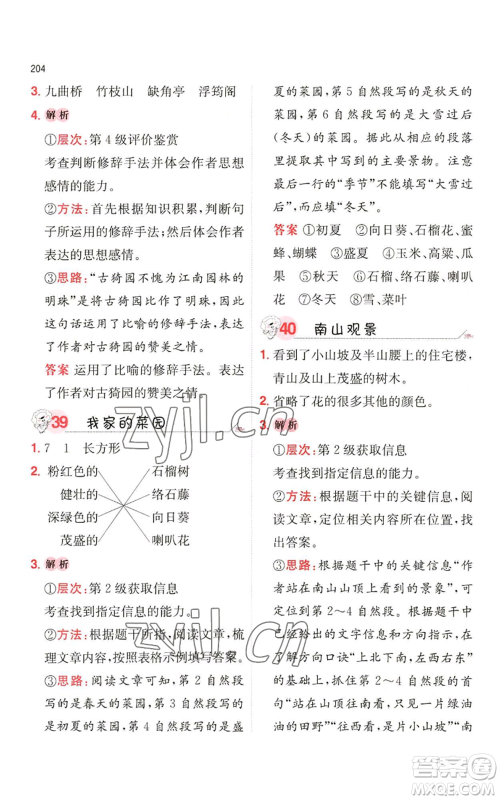 204
3. 九曲桥　竹枝山　缺角亭　浮筠阁
4. 解析
①层次：第 4 级评价鉴赏
考查判断修辞手法并体会作者思想
感情的能力。
②方法：首先根据知识积累，判断句
子所运用的修辞手法；然后体会作者
表达的思想感情。
③思路：“古猗园不愧为江南园林的
明珠”是把古猗园比作江南园林的明
珠，运用了比喻的修辞手法，表达了
作者对古猗园的赞美之情。
答案　运用了比喻的修辞手法，表达
了作者对古猗园的赞美之情。
39　我家的菜园
1. 7　1　长方形
2. 粉红色的　石榴树
健壮的　络石藤
深绿色的　向日葵
茂盛的　喇叭花
3. 解析
①层次：第 2 级获取信息
考查找到指定信息的能力。
②方法：根据题干所指，阅读文章，梳
理文章内容，按照表格示例填写答案。
③思路：阅读文章可知，第 2 自然段
写的是春天的菜园，第 3 自然段写的
是初夏的菜园，第 4 自然段写的是盛
夏的菜园，第 5 自然段写的是秋天的
菜园，第 6 自然段写的是大雪过后
（冬天）的菜园。在对应的自然段里
提取其中写到的主要景物。注意，最
后一格的“季节”不能填写“大雪过
后”，应填写“冬天”。
答案　①初夏　②向日葵、石榴花、蜜
蜂、蝴蝶　③盛夏　④玉米、高粱、瓜
果　⑤秋天　⑥石榴、络石藤、喇叭
花　⑦冬天　⑧雪、菜叶
40　南山观景
1. 看到了小山坡及半山腰上的住宅楼，
青山及山上茂盛的树木。
2. 省略了花的很多其他的颜色。
3. 解析
①层次：第 2 级获取信息
考查找到指定信息的能力。
②方法：根据题干中的关键信息，阅
读文章，定位到文章的相关句段，找
出答案。
③思路：根据题干中的关键信息“小
作者在南山山顶上看到的景象”，可
定位到第 2～4 自然段。根据表格中
已经给出的文字信息和方向标，并
了解方向口诀“上北下南，左西右东”，
可知第 2～4 自然段分别写的是“向
南看，首先映入眼帘的是一片绿油
油的田野”“往西看，是片小山坡”“向
zyjl.cn
zyjl.cn
答案圈
MXQE.COM